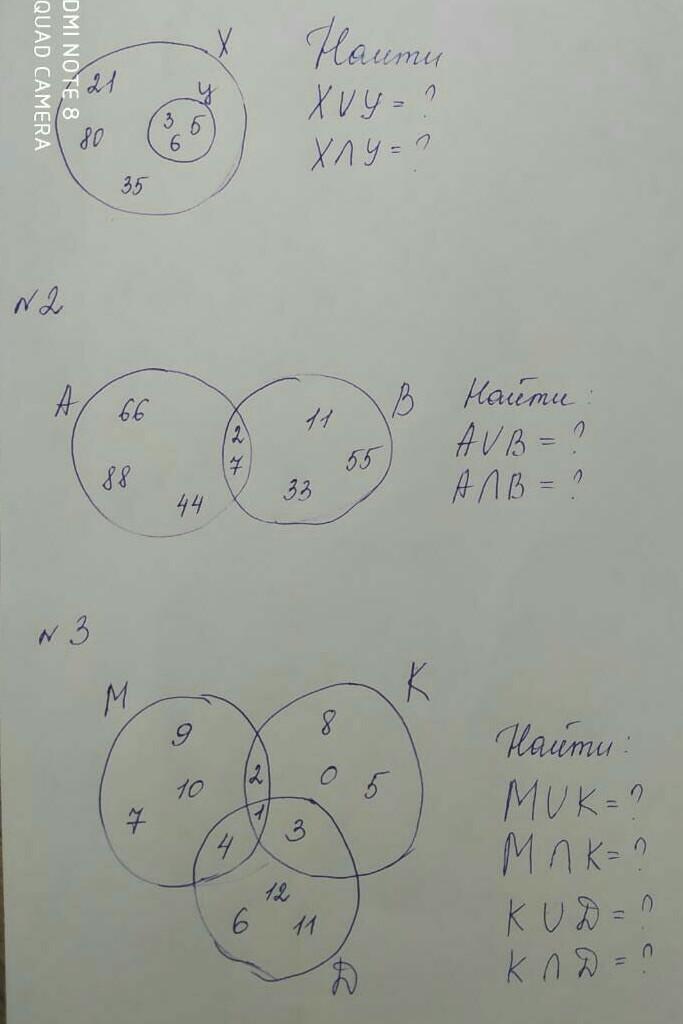 DMI NOTE 8
QUAD CAMERA
X
Найти
21
У
X∪У = ?
3 5
80
6
X∩У = ?
35
№2
A
66
B
Найти:
11
2
A∪B = ?
7
55
88
A∩B = ?
33
44
№3
M
K
9
8
Найти:
2
0
5
10
M∪K = ?
7
1
3
4
M∩K = ?
12
K∪D = ?
6
11
K∩D = ?
D